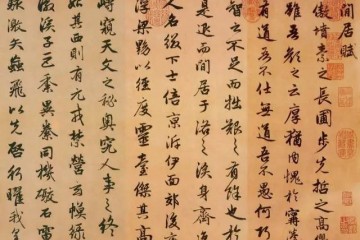 閒居賦
傲墳素之長圃步先哲之高
雖吾顏之云厚猶內愧於寗
有道吾不仕無道吾不愚何巧
智之不足而拙艱之有餘也於
是退而閒居于洛之涘身齊逸
人名綴下士倍京泝伊面郊後
浮梁黝以徑度靈臺傑其高
峙窺天文之秘奧究人事之終
始其西則有元戎禁營玄幕綠
徽溪子巨黍異絭同機礮石雷
駭激矢蝱飛以先啓行曜我